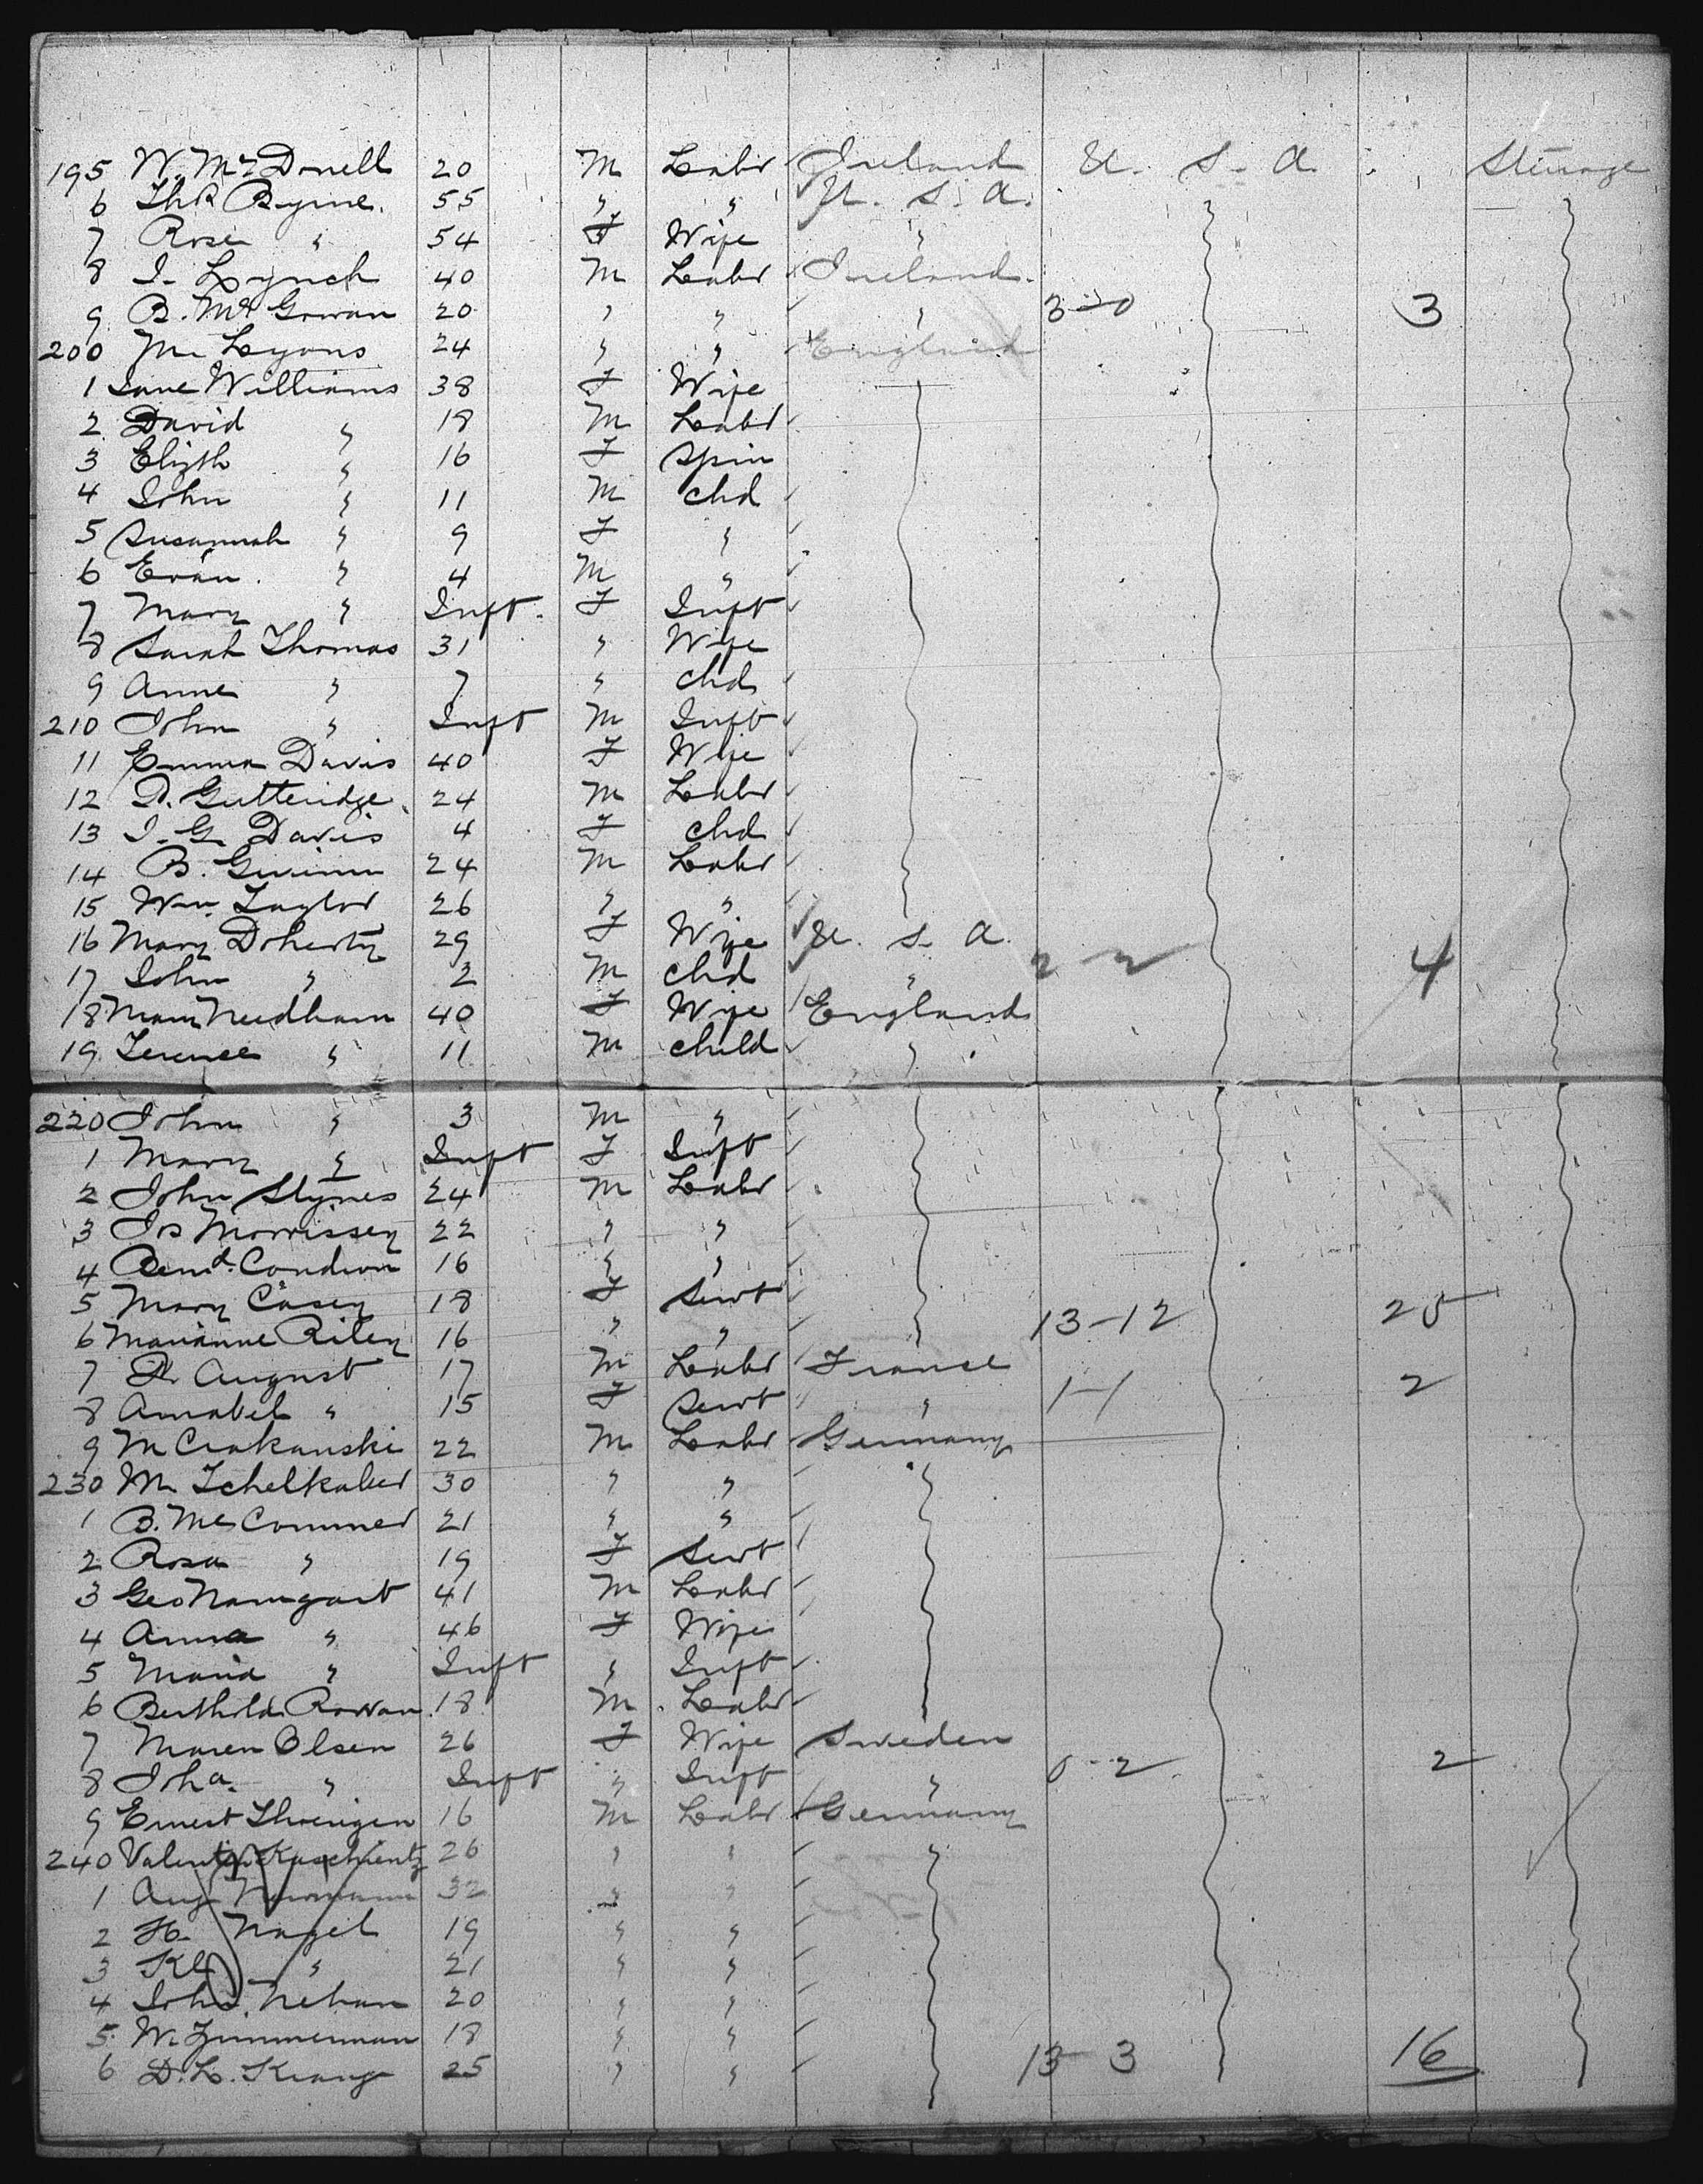 195 W. McDonell 20 M Labr Ireland U. S. A. Steerage
6 Thos Byrne. 55 " " U. S. A.
7 Rose " 54 F Wife "
8 J. Lynch 40 M Labr Ireland.
9 B. Mc Gowan 20 " " " 3-0 3
200 M. Lyons 24 " " England
1 Jane Williams 38 F Wife
2 David " 18 M Labr
3 Elizth " 16 F Spin
4 John " 11 M Chd
5 Susannah " 9 F "
6 Evan. " 4 M "
7 Mary " Inft. F Inft
8 Sarah Thomas 31 " Wife
9 Anne " 7 " Chd
210 John " Inft M Inft
11 Emma Davis 40 F Wife
12 D. Gutteridge. 24 M Labr
13 J. G. Davis 4 F Chd
14 B. 24 M Labr
15 Wm. Taylor 26 " "
16 Mary Doherty 29 F Wife U. S. A.
17 John " 2 M Chd " 2-2 4
18 Mary Needham 40 F Wife England
19 Terence " 11 M Child "
220 John " 3 M "
1 Mary " Inft F Inft
2 John Stynes 24 M Labr
3 Jos Morrissey 22 " "
4 Bernd. Condron 16 " "
5 Mary Casey 18 F Servt
6 Marianne Riley 16 " " " 13-12 25
7 August 17 M Labr France
8 Annabel " 15 F Servt " 1-1 2
9 M Crakauski 22 M Labr Germany
230 M. Tchelkaber 30 " "
1 B. Mc Commer 21 " "
2 Rosa " 19 F Servt
3 Geo Namgart 41 M Labr
4 Anna " 46 F Wife
5 Maria " Inft " Inft
6 Berthold Rowan 18 M Labr
7 Maren Olsen 26 F Wife Sweden
8 Joha. " Inft " Inft " 0-2 2
9 Ernest 16 M Labr Germany
240 Valentin 26 " " "
1 Aug Newmann 32 " "
2 H. Nagel 19 " "
3 " 21 " "
4 Nehan 20 " "
5 W. Zimmerman 18 " "
6 D. L. 25 " " 13 3 16